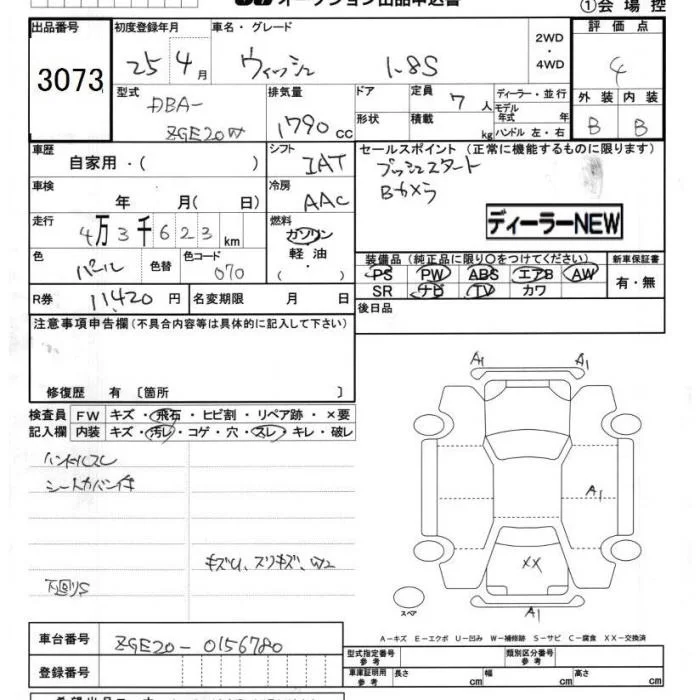 オークション出品申込書 ①会場控
出品番号 初度登録年月 車名・グレード 2WD・4WD 評価点
3073 25年4月 ウィッシュ 1.8S 4
型式 排気量 ドア 定員 7人 ディーラー・並行 外装 内装
DBA- 形状 積載 kg モデル年式 年 B B
ZGE20W 1790cc ハンドル 左・右
車歴 シフト セールスポイント (正常に機能するものに限ります)
自家用・( ) IAT プッシュスタート
車検 冷房 Bカメラ
年 月( 日) AAC
走行 燃料 ディーラーNEW
4万3千623km ガソリン
色 色替 色コード 軽油
パール 070 ・( )
装備品 (純正品に限り○をつけてください) 新車保証書
PS PW ABS エアB AW 有・無
SR ナビ TV カワ
R券 11,420円 名変期限 月 日 後日品
注意事項申告欄(不具合内容等は具体的に記入して下さい)
修復歴 有 〔箇所 〕
A1 A1
検査員 FW キズ・飛石・ヒビ割・リペア跡・×要
記入欄 内装 キズ・汚レ・コゲ・穴・スレ・キレ・破レ
ハンドルスレ
シートカバー付
A1
キズU、スリキズ、W2
XX
下回りS
スペア
A1
A-キズ E-エクボ U-凹み W-補修跡 S-サビ C-腐食 XX-交換済
車台番号 ZGE20-0156780
型式指定番号 参考 類別区分番号 参考
登録番号 車庫証明用 参考 長さ cm 幅 cm 高さ cm